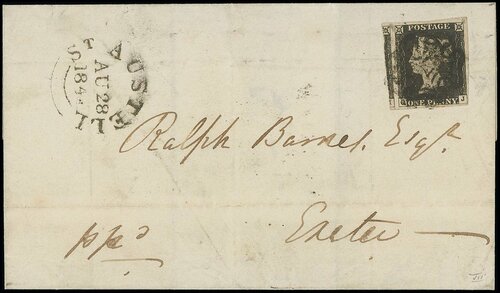 ST AUSTELL
AU 28
184
POSTAGE
ONE PENNY
J
Ralph Barnes, Esqr.
Exeter
ppd